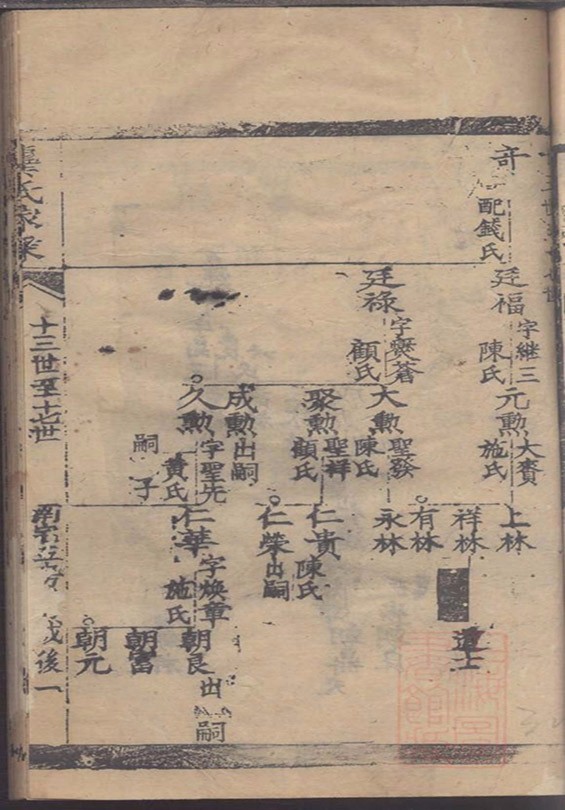 奇
配錢氏
廷福
字继三
陳氏
廷祿
顧氏
元勲
大賚
施氏
大勲
聖發
陳氏
聚勲
聖祥
顧氏
成勲
出嗣
久勲
字聖先
黃氏
嗣子
上林
祥林
道士
有林
永林
仁貴
陳氏
仁榮
出嗣
仁華
字煥章
施氏
朝良
出嗣
朝富
朝元
氏家
十三世至十七世
後一